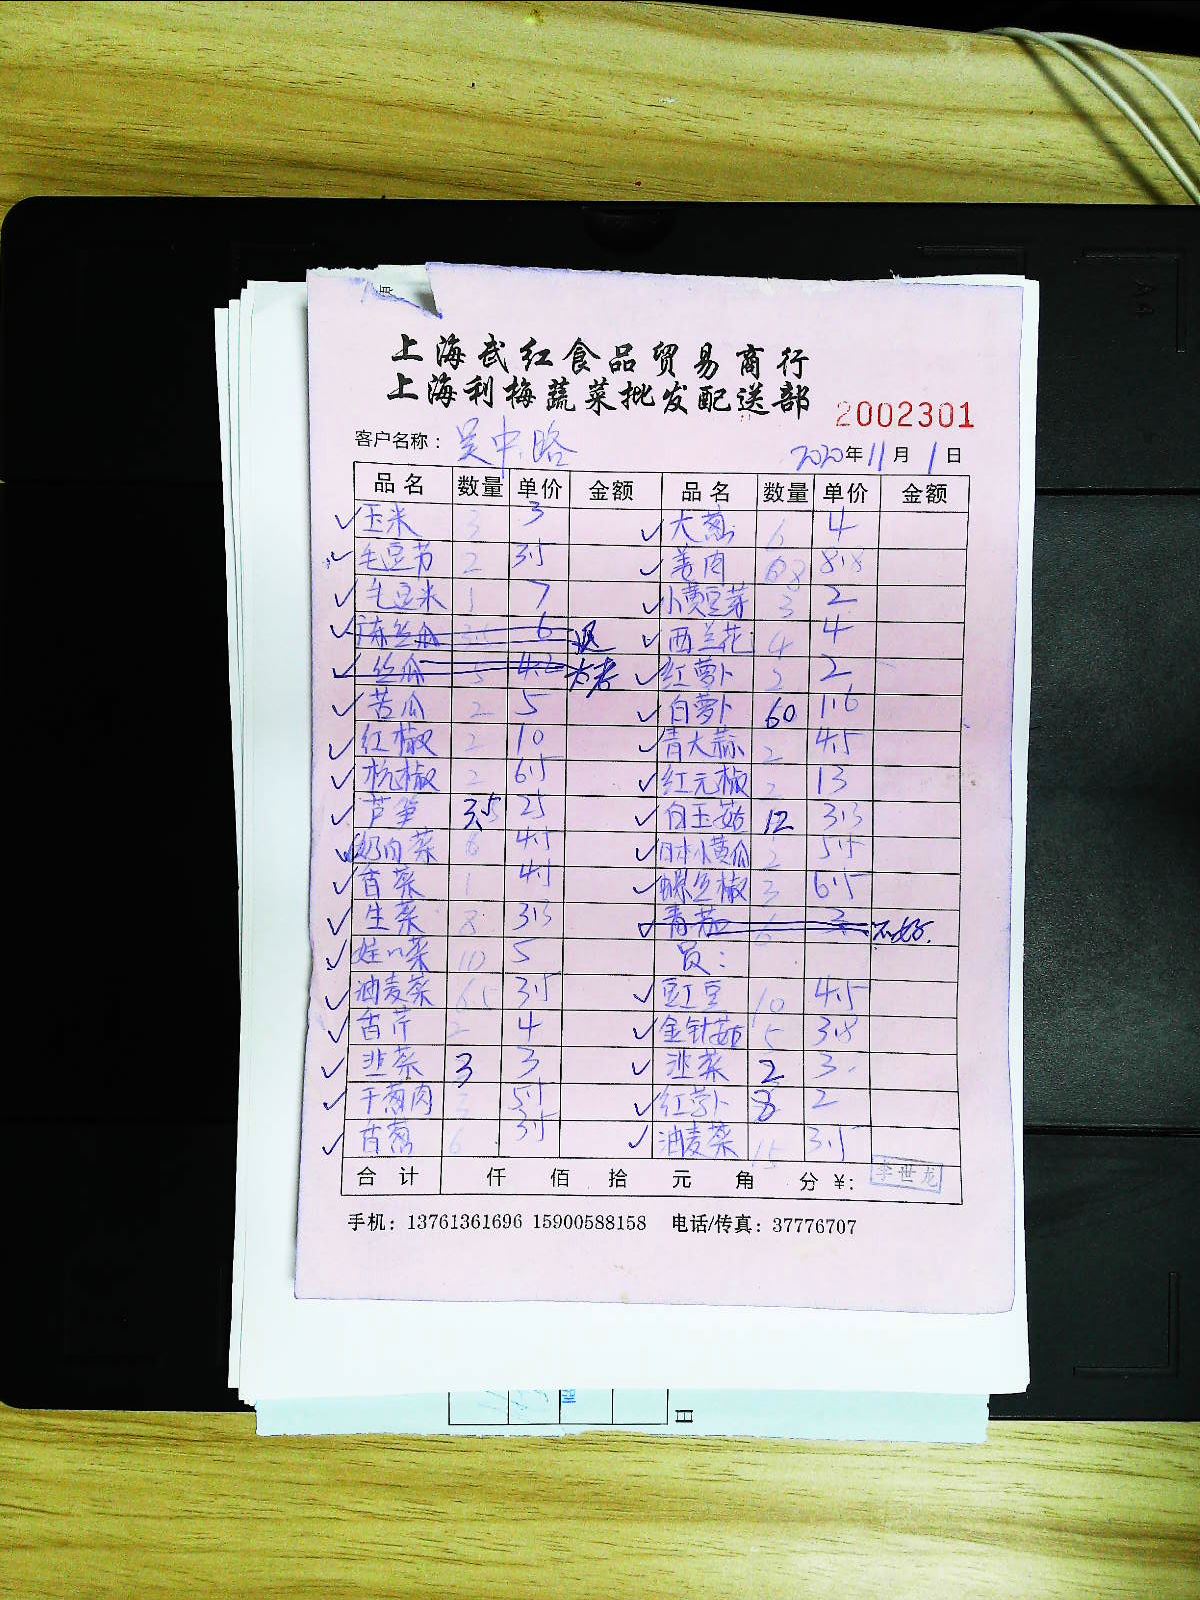 上海武红食品贸易商行
上海利梅蔬菜批发配送部
2002301
客户名称：吴中路 2020年11月1日
品名 数量 单价 金额 品名 数量 单价 金额
玉米 3 3 大葱 6 4
毛豆节 2 3.5 姜肉 8.8
毛豆米 1 7 小黄豆芽 3 2
冻丝瓜 6 退 西兰花 4 4
丝瓜 5 4.2 红萝卜 2 2
苦瓜 2 5 白萝卜 60 1.6
红椒 2 10 青大蒜 2 4.5
杭椒 2 6.5 红元椒 2 13
芦笋 3.5 25 白玉菇 12 3.3
奶白菜 6 4.5 日本小黄瓜 2 5.5
香菜 1 4.5 螺丝椒 3 6.5
生菜 8 3.3 青茄 6 3 不好.
娃娃菜 10 5 员：
油麦菜 6.5 3.5 豇豆 10 4.5
香芹 2 4 金针菇 5 3.8
韭菜 3 3 韭菜 2 3.
干葱肉 3 5.5 红萝卜 8 2
香葱 6 3.5 油麦菜 15 3.5
合计 仟 佰 拾 元 角 分 ¥: 李世龙
手机：13761361696 15900588158 电话/传真：37776707